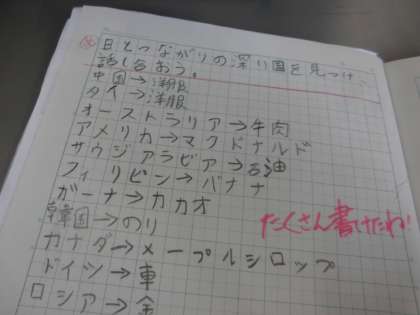 め 日本とつながりの深い国を見つけ、
話しあおう。
中国→洋服
タイ→洋服
オーストラリア→牛肉
アメリカ→マクドナルド
サウジアラビア→石油
フィリピン→バナナ
ガーナ→カカオ
韓国→のり
たくさん書けたね!
カナダ→メープルシロップ
ドイツ→車
ロシア→金